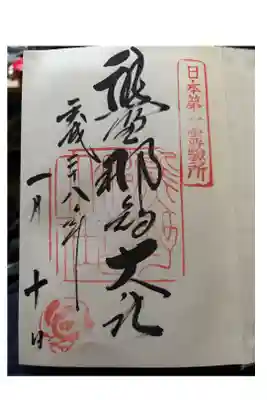 日本第一霊験所
熊野那智大社
平成二十八年
一月十日